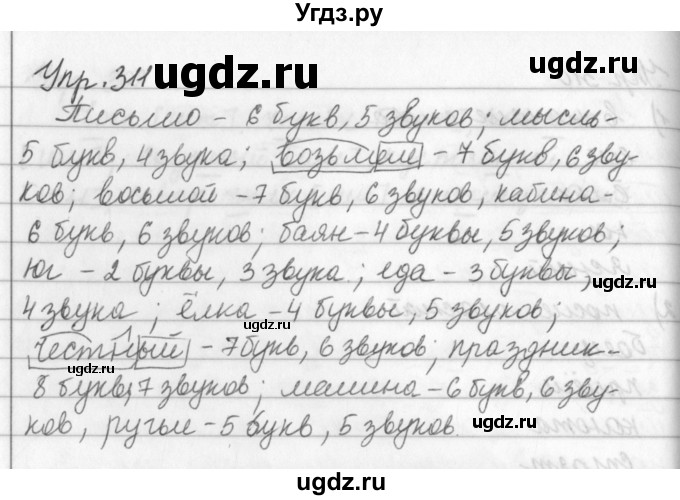 Угдз.ру
Упр. 311 ugdz.ru
Письмо - 6 букв, 5 звуков; мысль-
5 букв, 4 звука; возьмём - 7 букв, 6 зву-
ков; восьмой - 7 букв, 6 звуков, кабина-
6 букв, 6 звуков; баян - 4 буквы, 5 звуков;
юг - 2 буквы, 3 звука; еда - 3 буквы,
4 звука; ёлка - 4 буквы, 5 звуков;
честный - 7 букв, 6 звуков; праздник-
8 букв, 7 звуков; машина - 6 букв, 6 зву-
ков, ружьё - 5 букв, 5 звуков.
ugdz.ru
ugdz.ru
ugdz.ru
ugdz.ru
ugdz.ru
ugdz.ru
ugdz.ru
ugdz.ru
ugdz.ru
ugdz.ru